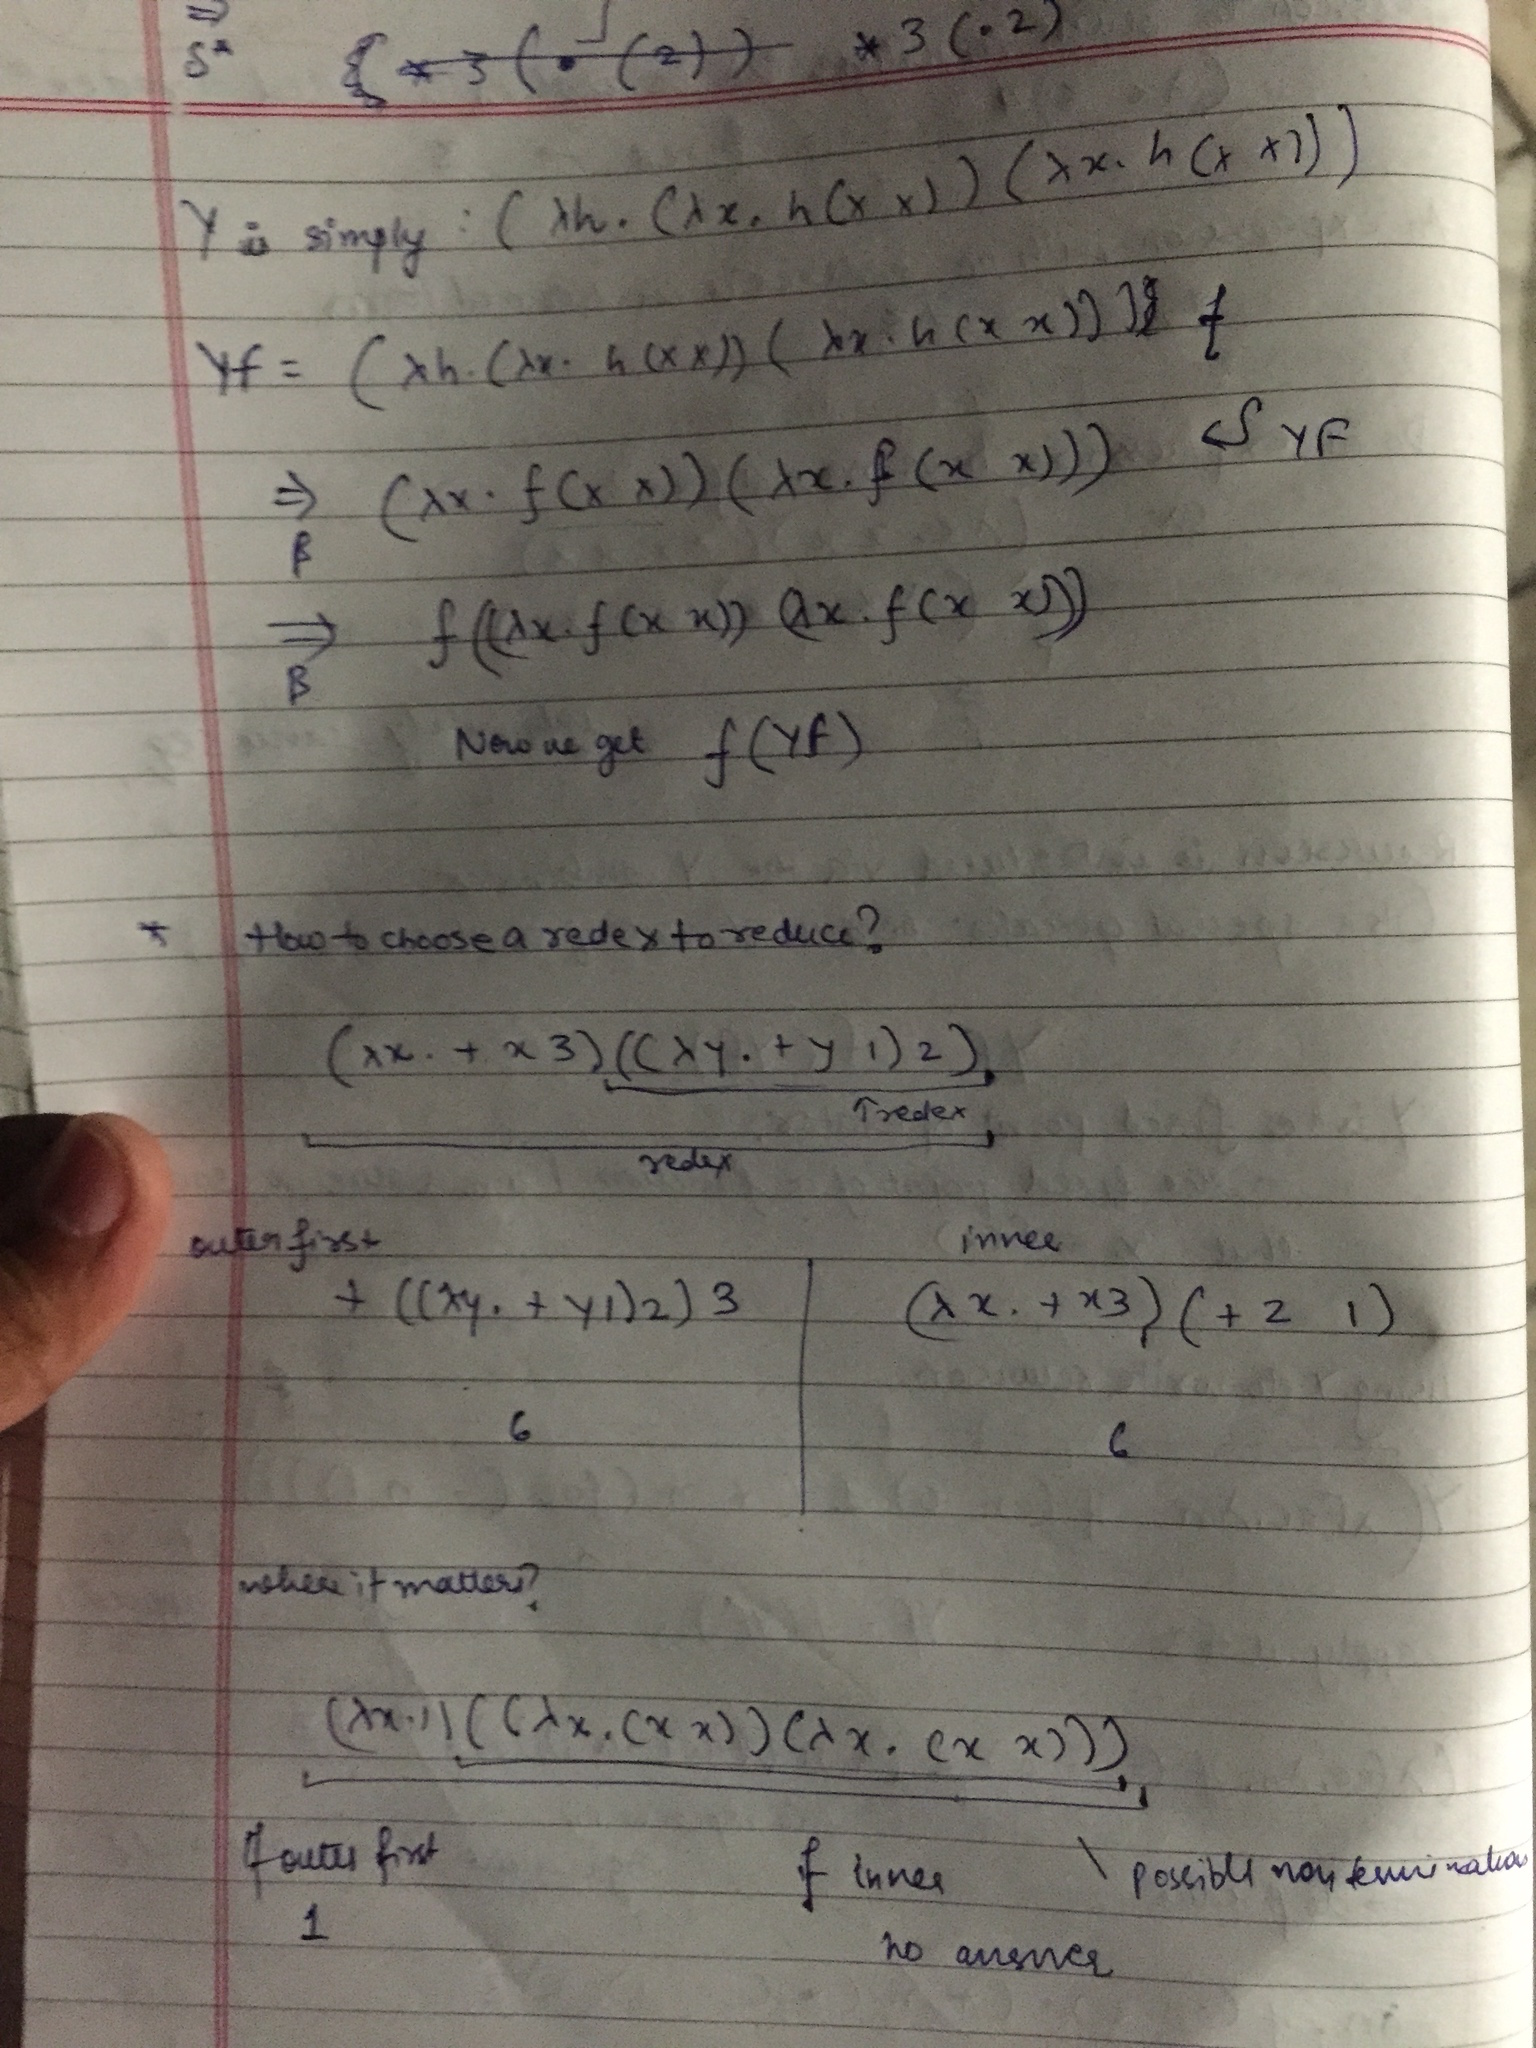 ⇒
δ* * 3 (• (2)) * 3 (• 2)
Y is simply : ( λh. (λx. h(x x)) (λx. h(x x)))
Yf = ( λh. (λx. h(x x)) ( λx. h(x x))) f
⇒ (λx. f(x x)) (λx. f(x x))) YF
β
⇒ f((λx. f(x x)) (λx. f(x x)))
β
Now we get f(Yf)
* How to choose a redex to reduce?
(λx. + x 3) ((λy. + y 1) 2)
↑redex
redex
outer first inner
+ ((λy. + y 1) 2) 3 (λx. + x 3) (+ 2 1)
6 6
where it matters?
(λx. 1) ((λx. (x x)) (λx. (x x)))
If outer first if inner \ possible non termination
1 no answer